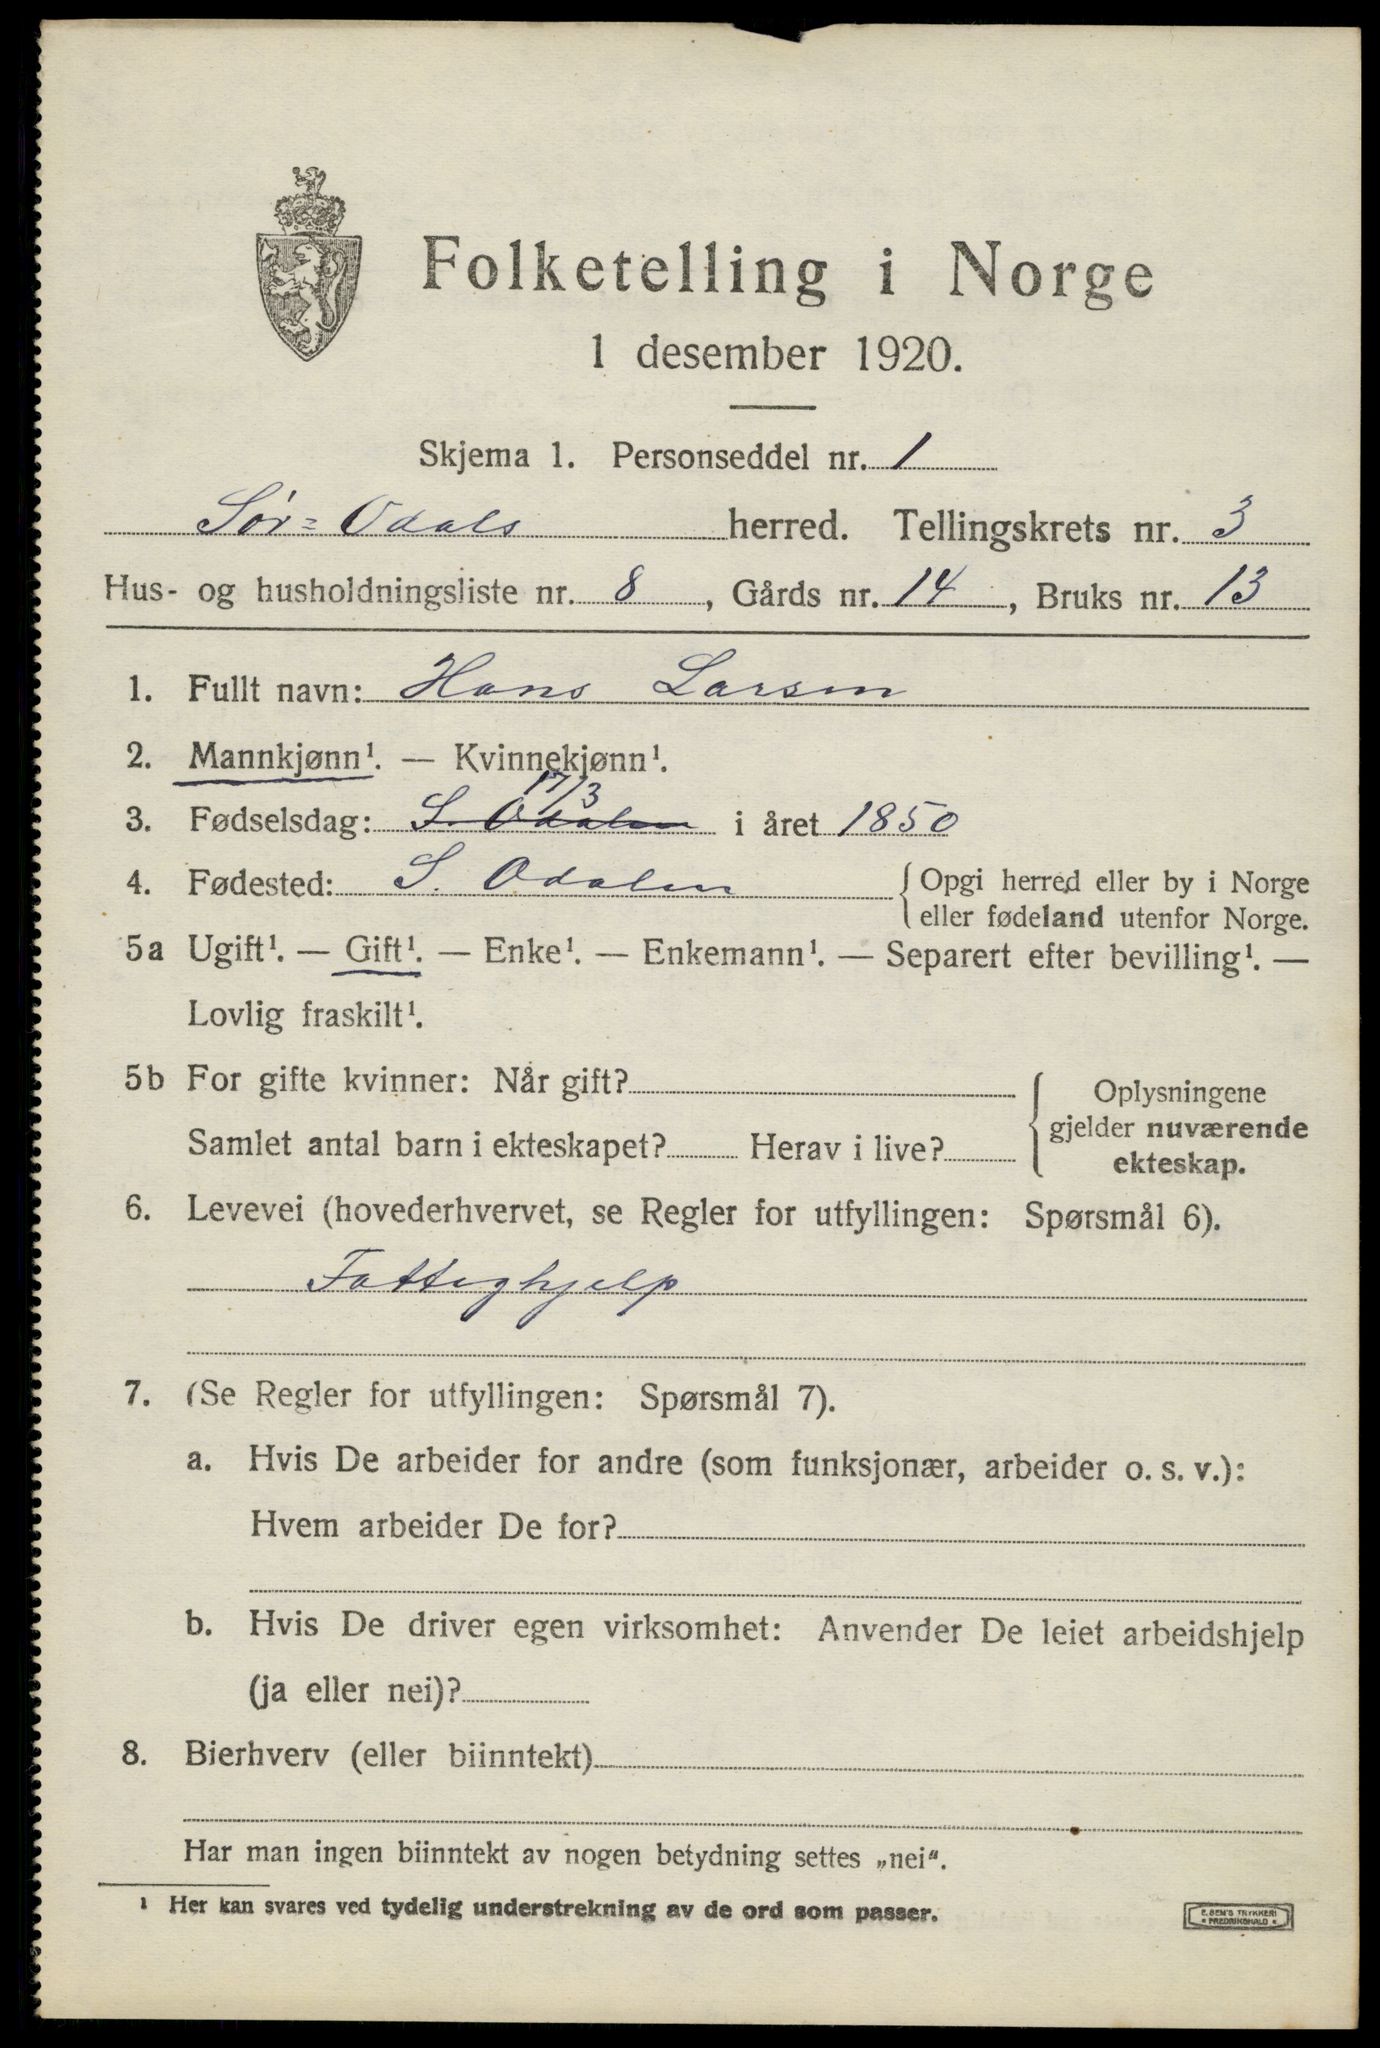 Folketelling i Norge
1 desember 1920.
Skjema 1. Personseddel nr. 1
Sør-Odals herred. Tellingskrets nr. 3
Hus- og husholdningsliste nr. 8, Gårds nr. 14, Bruks nr. 13
1. Fullt navn: Hans Larsen
2. Mannkjønn¹. — Kvinnekjønn¹.
17/3
3. Fødselsdag: S. Odalen i året 1850
4. Fødested: S. Odalen { Opgi herred eller by i Norge
eller fødeland utenfor Norge.
5a Ugift¹. — Gift¹. — Enke¹. — Enkemann¹. — Separert efter bevilling¹. —
Lovlig fraskilt¹.
5b For gifte kvinner: Når gift? { Oplysningene
gjelder nuværende
Samlet antal barn i ekteskapet? Herav i live? ekteskap.
6. Levevei (hovederhvervet, se Regler for utfyllingen: Spørsmål 6).
Fattighjelp
7. (Se Regler for utfyllingen: Spørsmål 7).
a. Hvis De arbeider for andre (som funksjonær, arbeider o. s. v.):
Hvem arbeider De for?
b. Hvis De driver egen virksomhet: Anvender De leiet arbeidshjelp
(ja eller nei)?
8. Bierhverv (eller biinntekt)
Har man ingen biinntekt av nogen betydning settes „nei“.
¹ Her kan svares ved tydelig understrekning av de ord som passer.
E. SEM'S TRYKKERI
• FREDRIKSHALD •